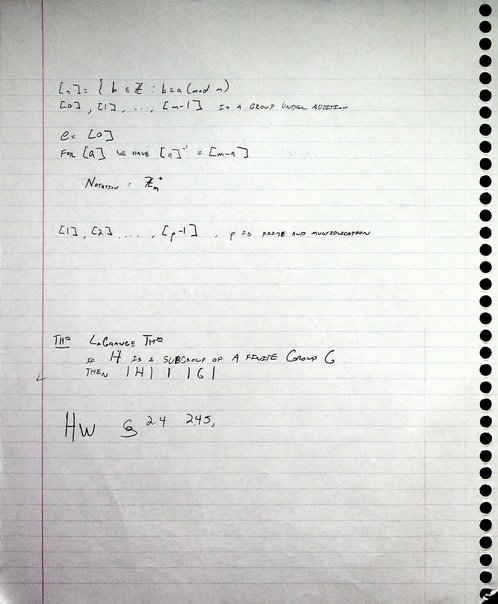 [a] = { b ∈ ℤ : b ≡ a (mod m)
[0], [1], ..., [m-1] IS A GROUP UNDER ADDITION
e = [0]
FOR [a] WE HAVE [a]⁻¹ = [m-a]
NOTATION : ℤₘ⁺
[1], [2], ..., [p-1] . p IS PRIME AND MULTIPLICATION
THM LAGRANGE THM
IF H IS A SUBGROUP OF A FINITE GROUP G
THEN |H| | |G|
HW 2.4 2.45,